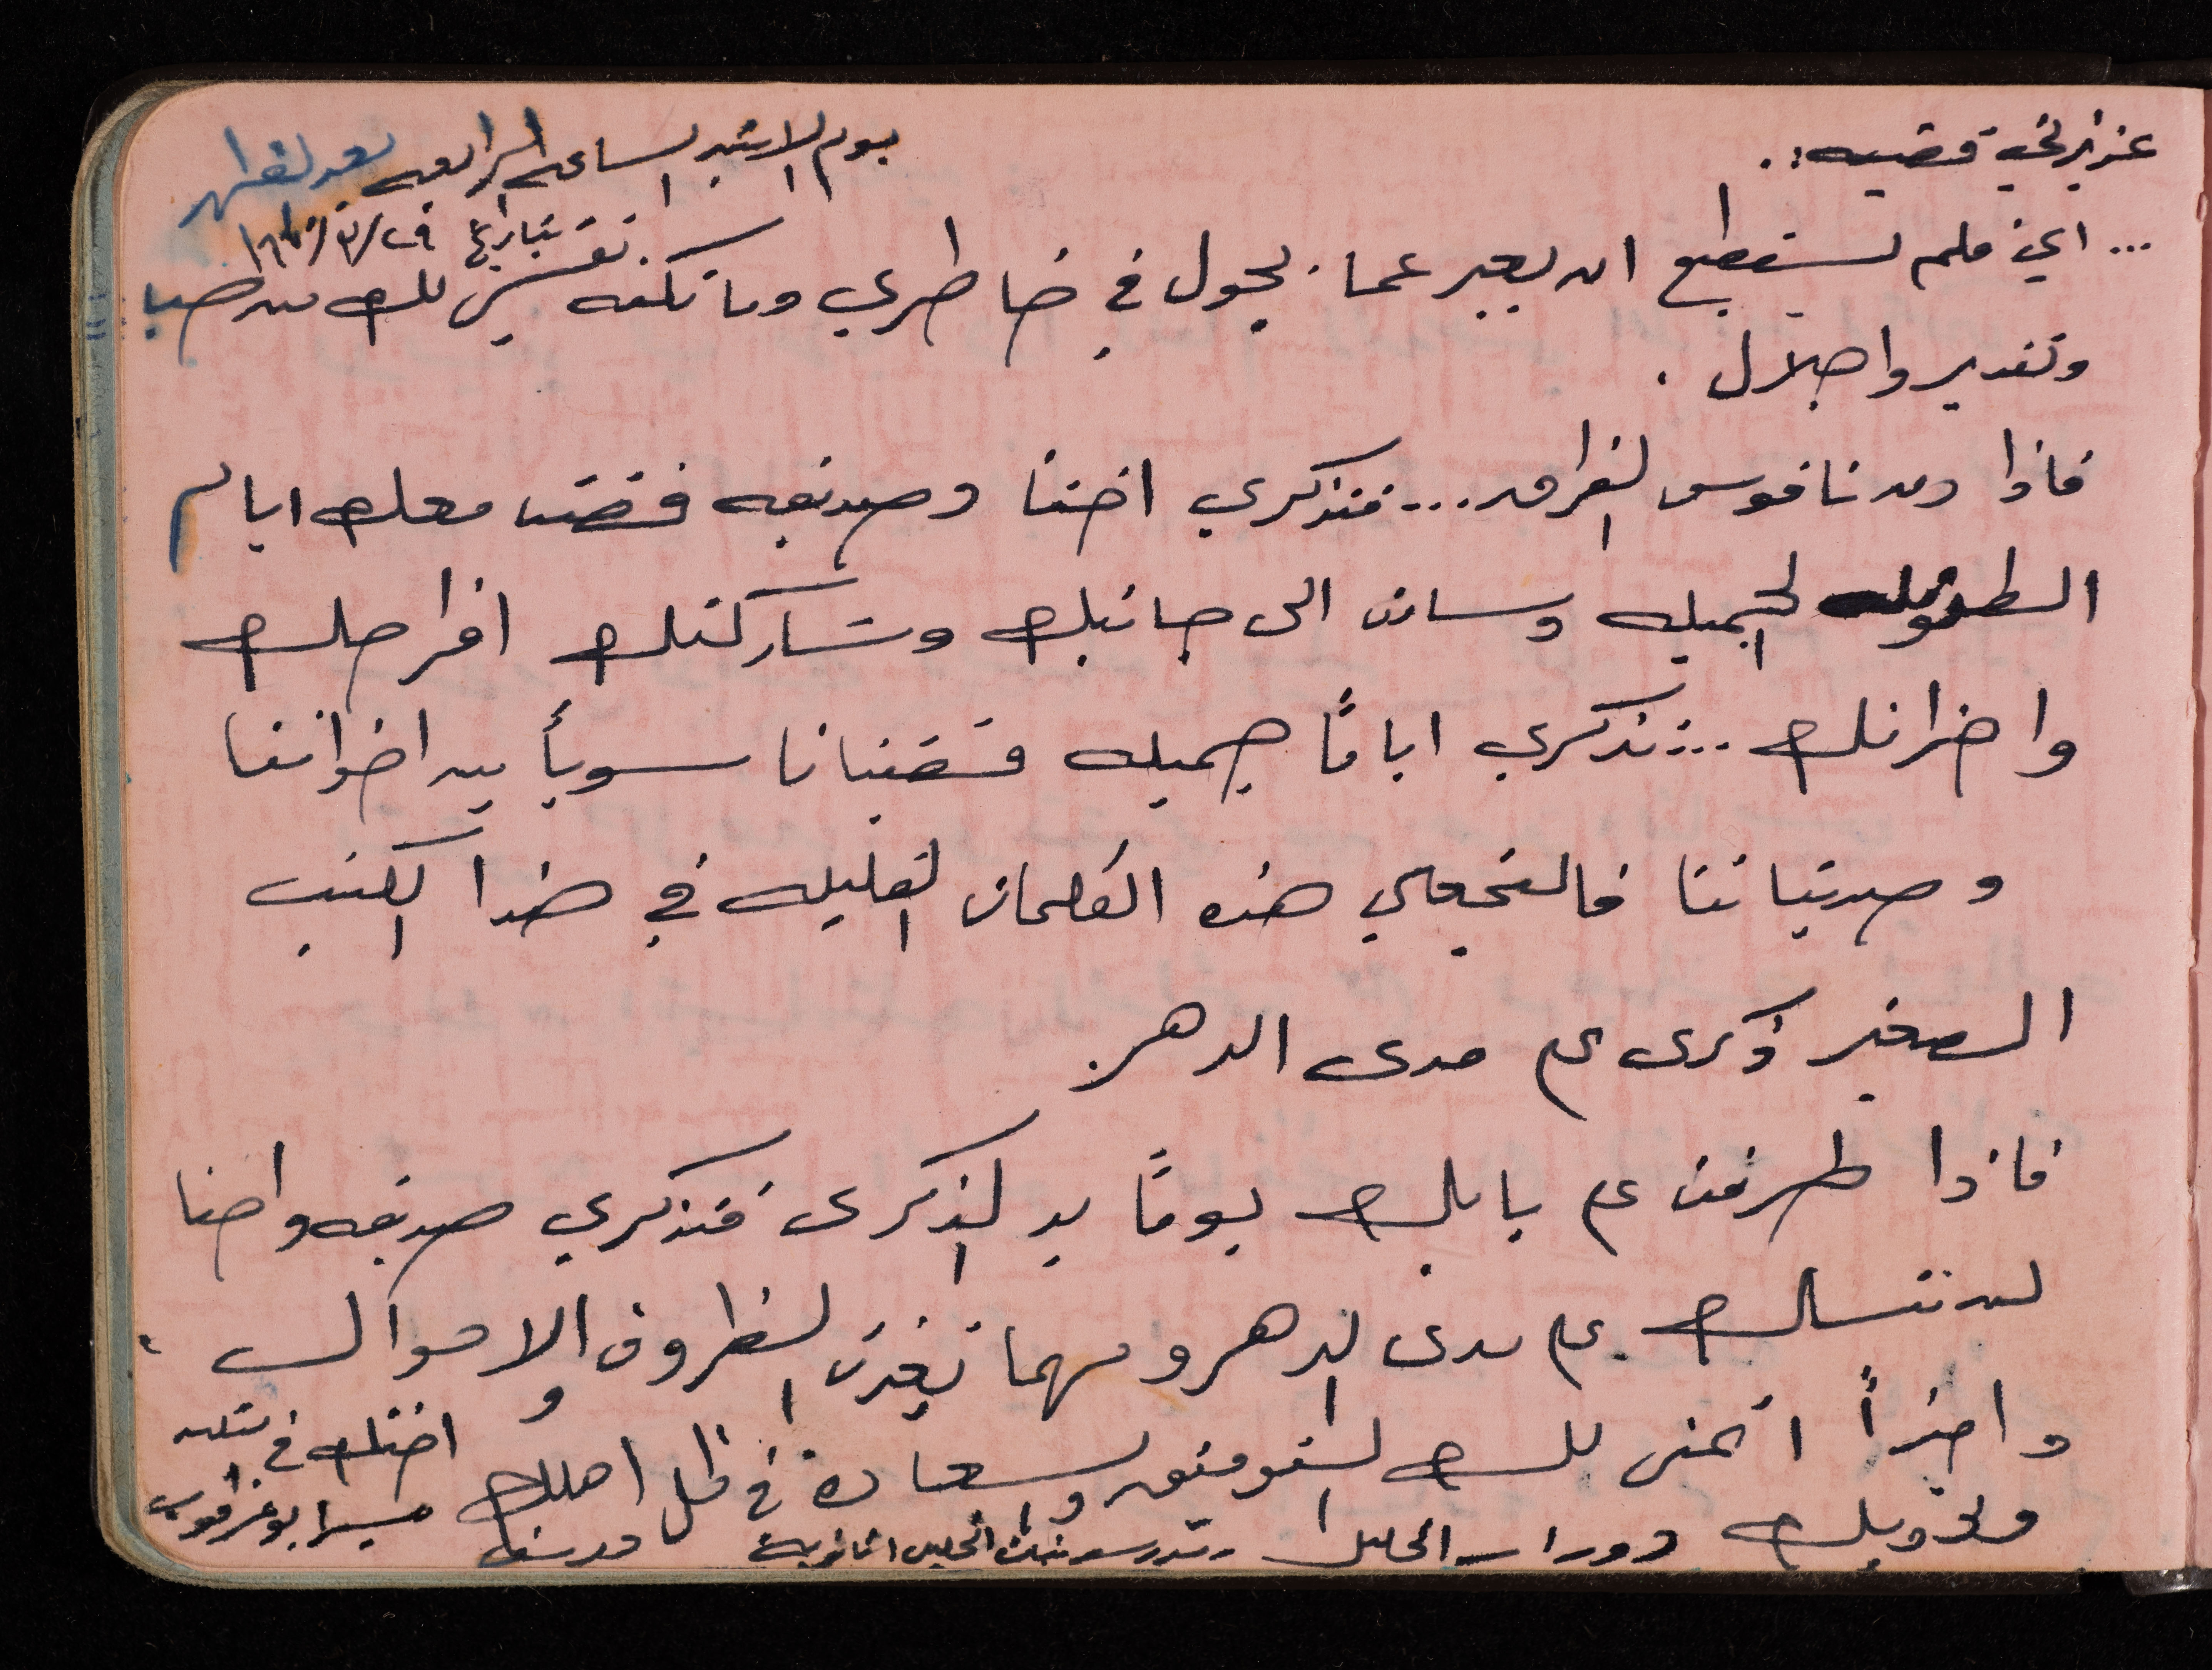 عزيزتي قضيه :.
يوم الاثنين الساعة الرابعه بعد الظهر
بتاريخ
... اي قلم يستطيع ان يعبر عما يجول في خاطري وما تكنه نفسي لك من حب
وتقدير واجلال .
فاذا دق ناقوس الفراق ... فتذكري اختا وصديقه قضت معك ايام
الطفوله الجميله وسارت الى جانبك وشاركتك افراحك
واحزانك ... تذكري اياماً جميله قضيناها سوياً بين اخواننا
وصديقاتنا فالتجعلي هذه الكلمات القليله في هذا الكتيب
الصغير ذكرى على مدى الدهر .
فاذا طرقت على بابك يوماً يد الذكرى فتذكري صديقه واختا
لن تنساك على مدى الدهر ومهما تغيرت الظروف والاحوال .
واخيراً اتمنى لك التوفيق والسعادة في ظل اهلك
وذويك
اختك في
دورا - الخليل - مدرسة بنات الخليل الثانوية